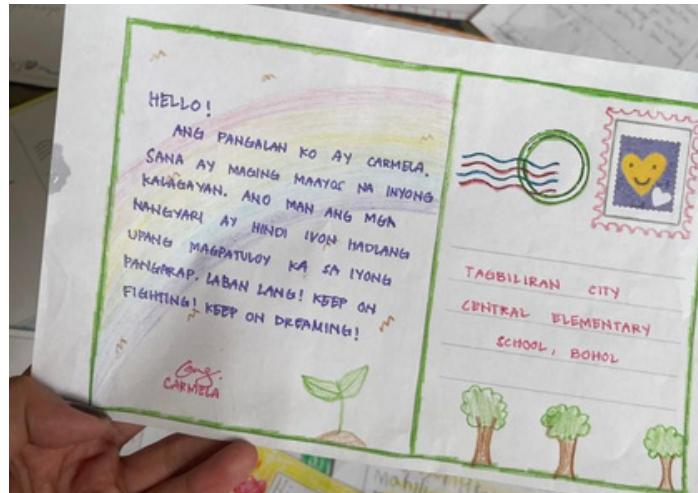 HELLO!
ANG PANGALAN KO AY CARMELA.
SANA AY MAGING MAAYOS NA INYONG
KALAGAYAN. ANO MAN ANG MGA
NANGYARI AY HINDI IYON HADLANG
UPANG MAGPATULOY KA SA IYONG
PANGARAP. LABAN LANG! KEEP ON
FIGHTING! KEEP ON DREAMING!
CARMELA
TAGBILIRAN CITY
CENTRAL ELEMENTARY
SCHOOL, BOHOL